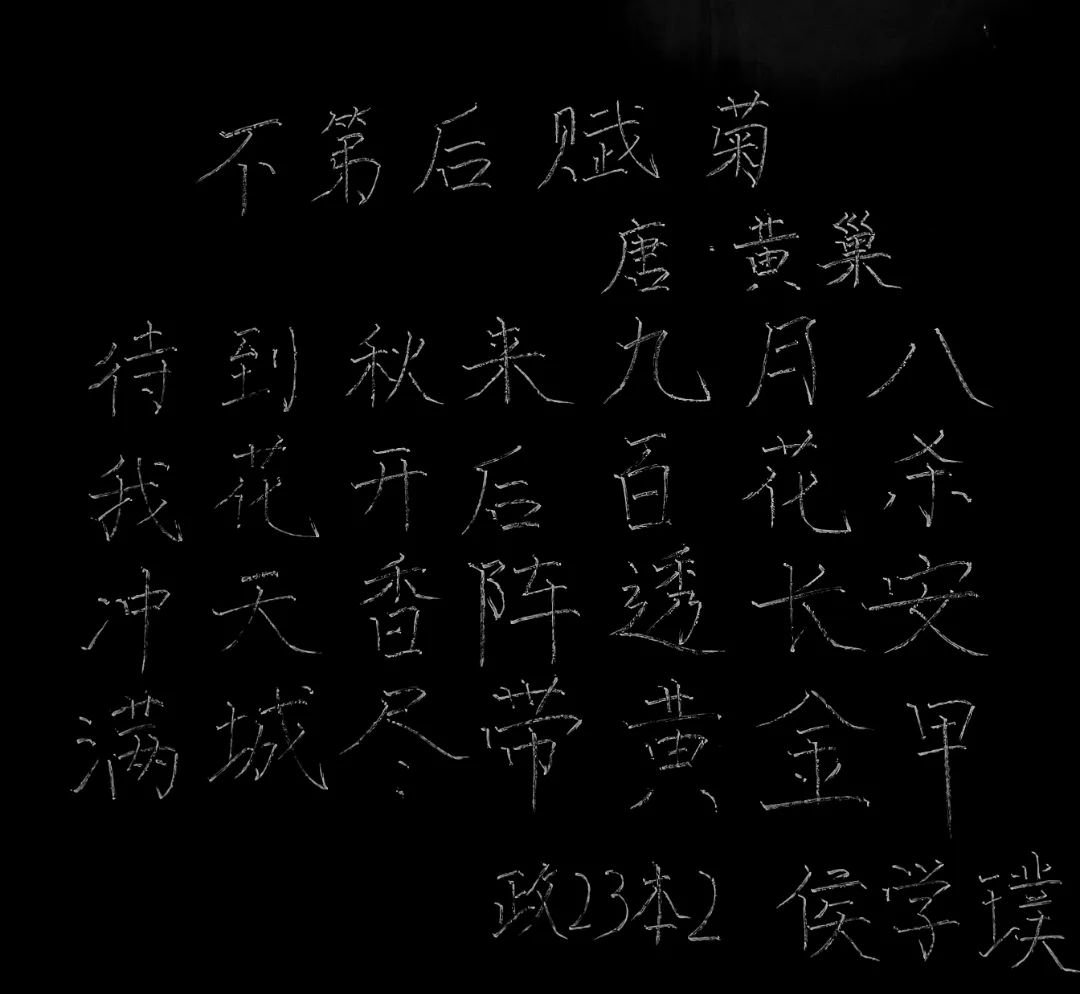 不第后赋菊
唐·黄巢
待到秋来九月八
我花开后百花杀
冲天香阵透长安
满城尽带黄金甲
政23本2 侯学璞